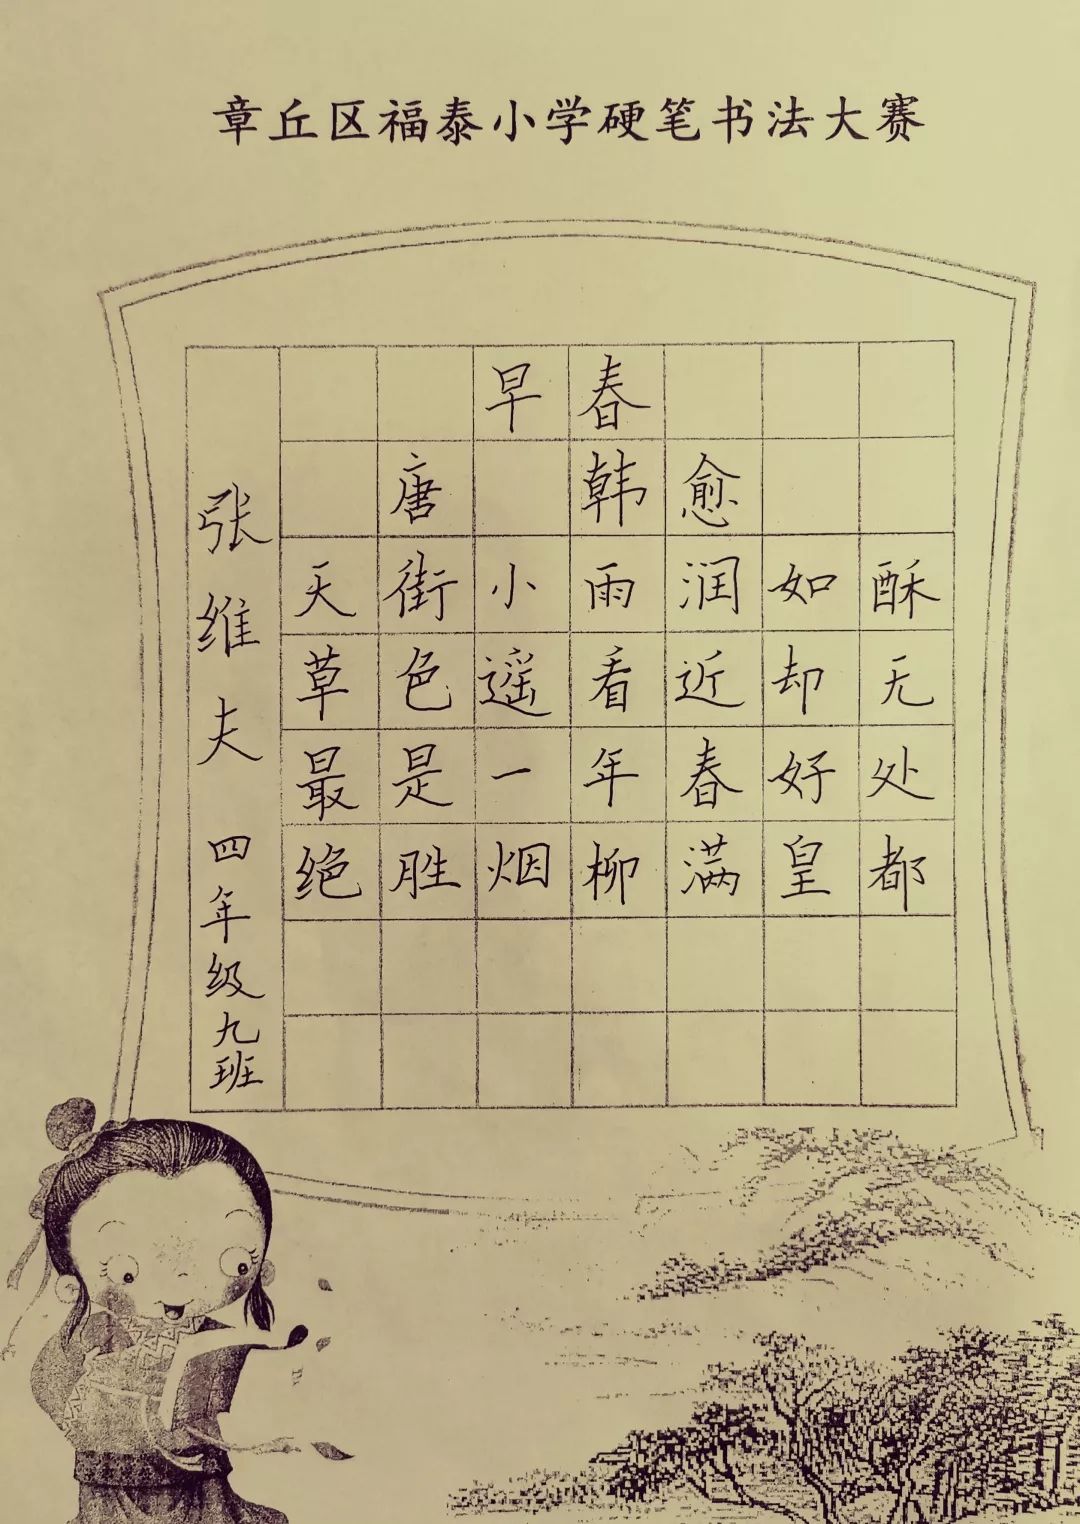 章丘区福泰小学硬笔书法大赛
早春
唐 韩愈
天街小雨润如酥
草色遥看近却无
最是一年春好处
绝胜烟柳满皇都
张维夫 四年级九班